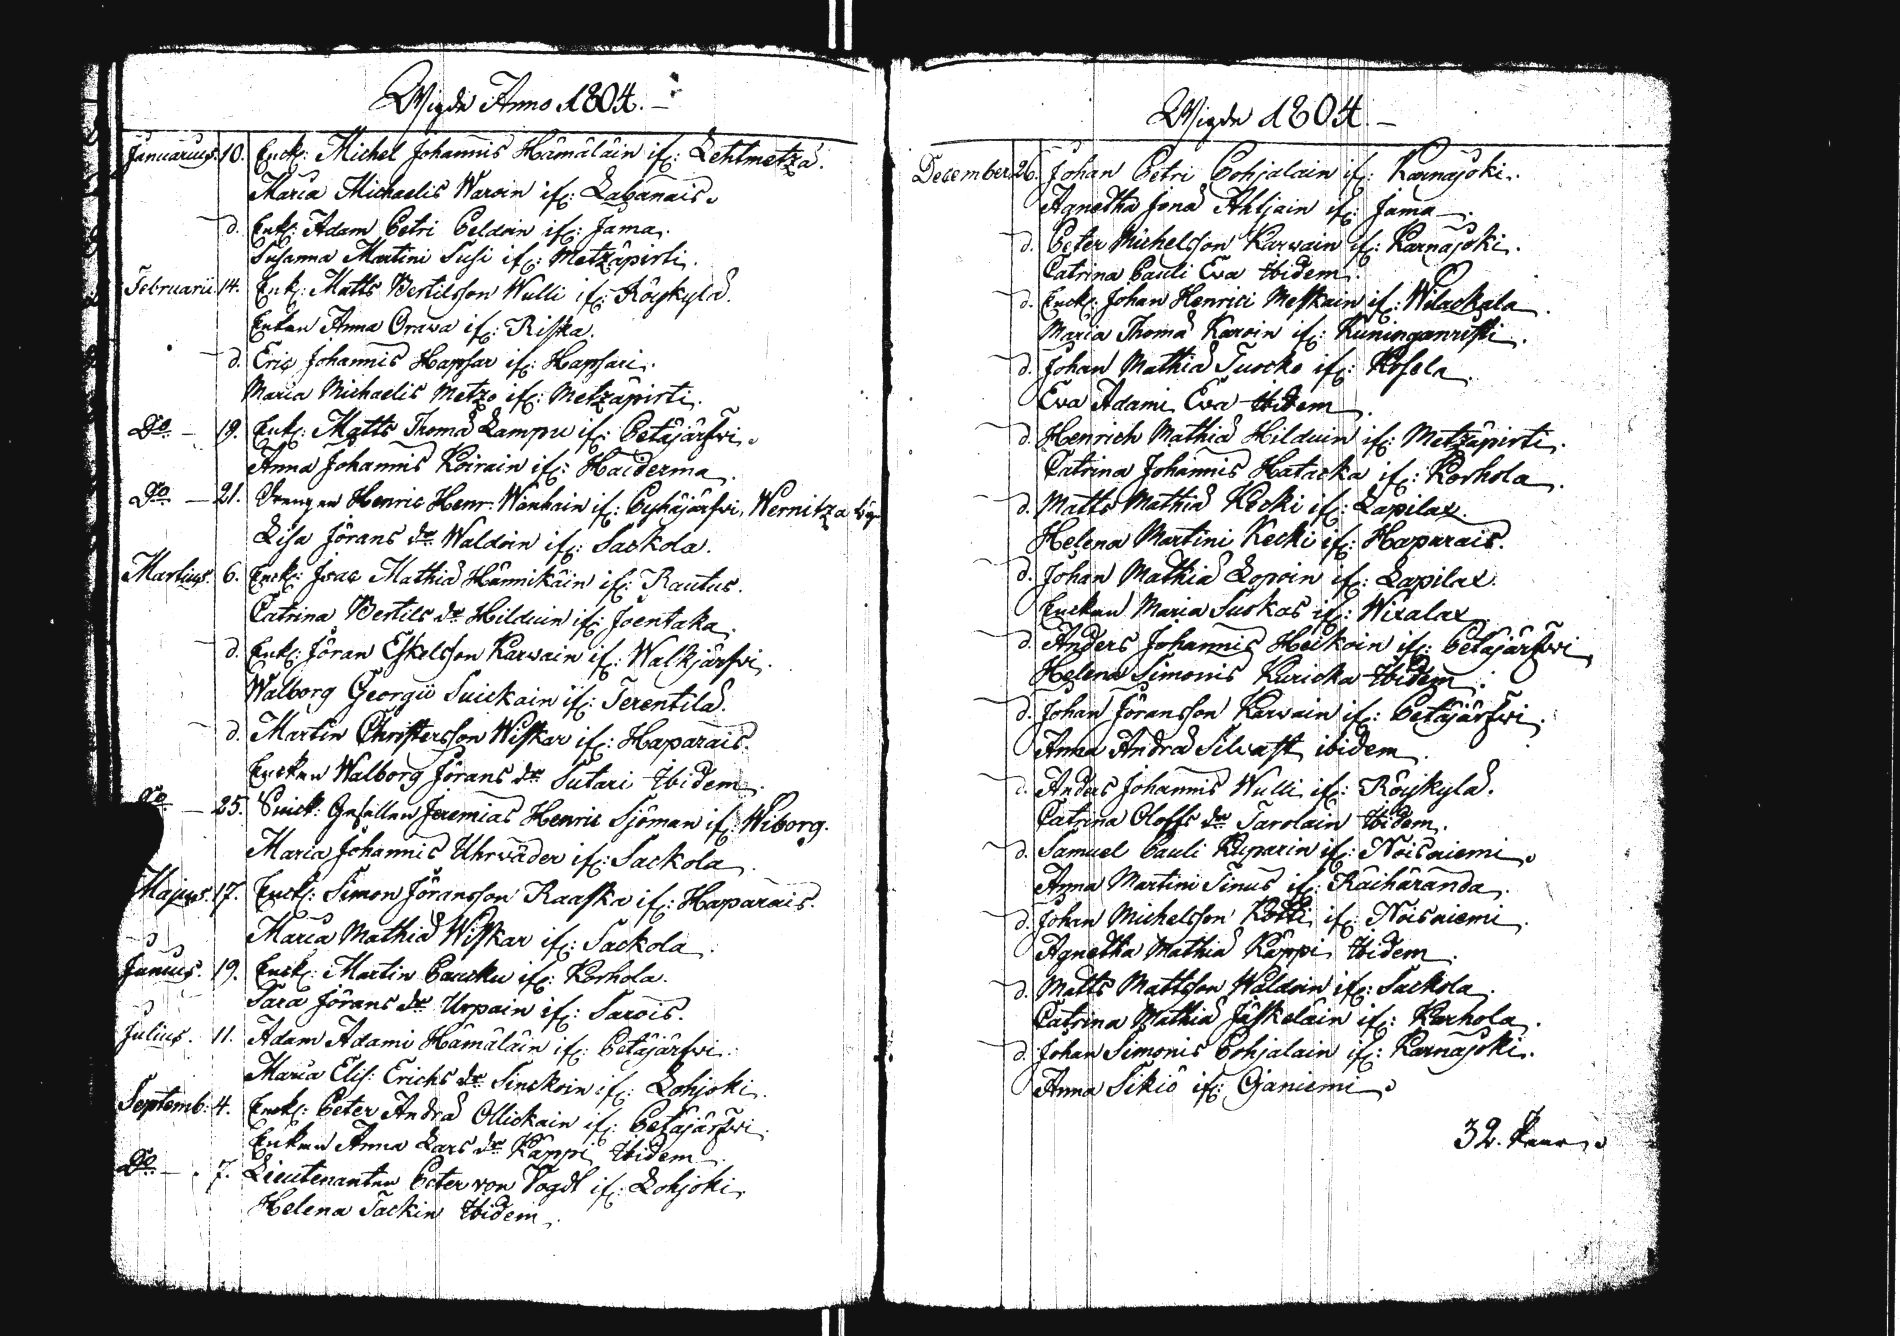 Wigde Anno 1804.
Januarius. 10. Enckl: Michel Johannis Hämäläin ifr: Lehtmetzä.
Maria Michaelis Waroin ifr: Labanais.
d. Enkl: Adam Petri Peldoin ifr: Jama.
Susanna Martini Susi ifr: Metzäpirti.
Februarii 14. Enkl: Matts Bertilsson Wulli ifr: Röijkylä.
Enkan Anna Orawa ifr: Riska.
d. Eric Johannis Hapsar ifr: Hapsari.
Maria Michaelis Metzo ifr: Metzäpirti.
Do 19. Enkl: Matts Thomæ Lampu ifr: Petäjärfwi.
Anna Johannis Koirain ifr: Haiderma.
Do 21. Drengen Henric Henr: Wanhain ifr: Pyhäjärfwi, Wernitza by
Lisa Jörans dr Waldoin ifr: Sackola.
Martius. 6. Enckl: Isac Mathiæ Hännikäin ifr: Rautus.
Catrina Bertils dr Hilduin ifr: Joentaka.
d. Enkl: Jöran Eskelsson Karwain ifr: Walkjärfwi.
Walborg Georgii Suickain ifr: Terentilä.
d. Martin Christersson Wiskar ifr: Haparais.
Enckan Walborg Jörans dr Sutari Ibidem.
Do 25. Gesällen Jeremias Henric Sjöman ifr: Wiborg.
Maria Johannis Uhrwäder ifr: Sackola.
Majus. 17. Enckl: Simon Jöransson Raaska ifr: Haparais.
Maria Mathiæ Wiskar ifr: Sackola.
Junius. 19. Enckl: Martin Paasku ifr: Korhola.
Sara Jörans dr Urpain ifr: Sarois.
Julius. 11. Adam Adami Hämäläin ifr: Petäjärfwi.
Maria Elis: Erichs dr Sinckoin ifr: Lohjoki.
Septemb: 4. Enckl: Peter Andræ Ollickain ifr: Petäjärfwi.
Enkan Anna Lars dr Käppi Ibidem.
Do 7. Lieutenanten Peter von Vogdt ifr: Lohjoki.
Helena Tackin Ibidem.
Wigde 1804.
December. 26. Johan Petri Pohjalain ifr: Karnajoki.
Agnetha Jonæ Ahtjain ifr: Jama.
d. Peter Michelsson Karwain ifr: Karnajoki.
Catrina Pauli Eva Ibidem.
d. Enckl: Johan Henrici Meskain ifr: Wilackala.
Maria Thomæ Karoin ifr: Kuninganristi.
d. Johan Mathiæ Tuocko ifr: Kosela.
Eva Adami Eva Ibidem.
d. Henrich Mathiæ Hilduin ifr: Metzäpirti.
Catrina Johannis Hatacka ifr: Korhola.
d. Matts Mathiæ Kecki ifr: Lapilax.
Helena Martini Kecki ifr: Haparais.
d. Johan Mathiæ Lopoin ifr: Lapilax.
Enckan Maria Suokas ifr: Wixalax.
d. Anders Johannis Heikoin ifr: Petäjärfwi
Helena Simonis Kuricka Ibidem.
d. Johan Jöransson Karwain ifr: Petäjärfwi.
Anna Andræ Silvast ibidem.
d. Anders Johannis Wulli ifr: Röijkylä.
Catrina Oloffs dr Tarolain Ibidem.
d. Samuel Pauli Kuparin ifr: Noisniemi.
Anna Martini Sinus ifr: Raiharanda.
d. Johan Michelsson Kotti ifr: Noisniemi.
Agnetha Mathiæ Käppi Ibidem.
d. Matts Mattsson Waldoin ifr: Sackola.
Catrina Mathiæ Jäskeläin ifr: Karhola.
d. Johan Simonis Pohjalain ifr: Karnajoki.
Anna Sikiö ifr: Ojaniemi.
32. Paar.